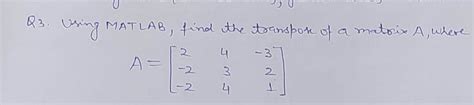 Q3. Using MATLAB, find the transpose of a matrix A, where
A = [ 2 4 -3
-2 3 2
-2 4 1 ]